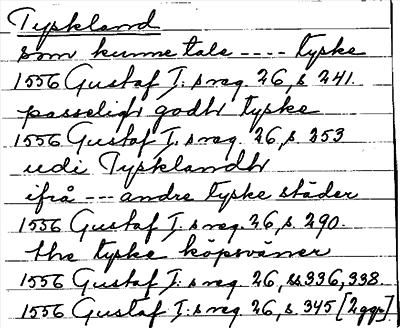 Tyskland
som kunne tale ---- tyske
1556 Gustaf I:s reg. 26, s. 241.
passeligh godtt tyske
1556 Gustaf I:s reg. 26, s. 253
udi Tysklandh
ifrå --- andre tyske städer
1556 Gustaf I:s reg. 26, s. 290.
the tyske köpsväner
1556 Gustaf I:s reg. 26, ss 336, 338.
1556 Gustaf I:s reg. 26, s. 345 [2 ggr].